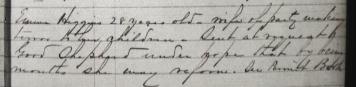 Emma Higgins 28 years old - wife of party making
to her children - Sent at request of
Good Shepherd under hope that by
months she may reform. See Both